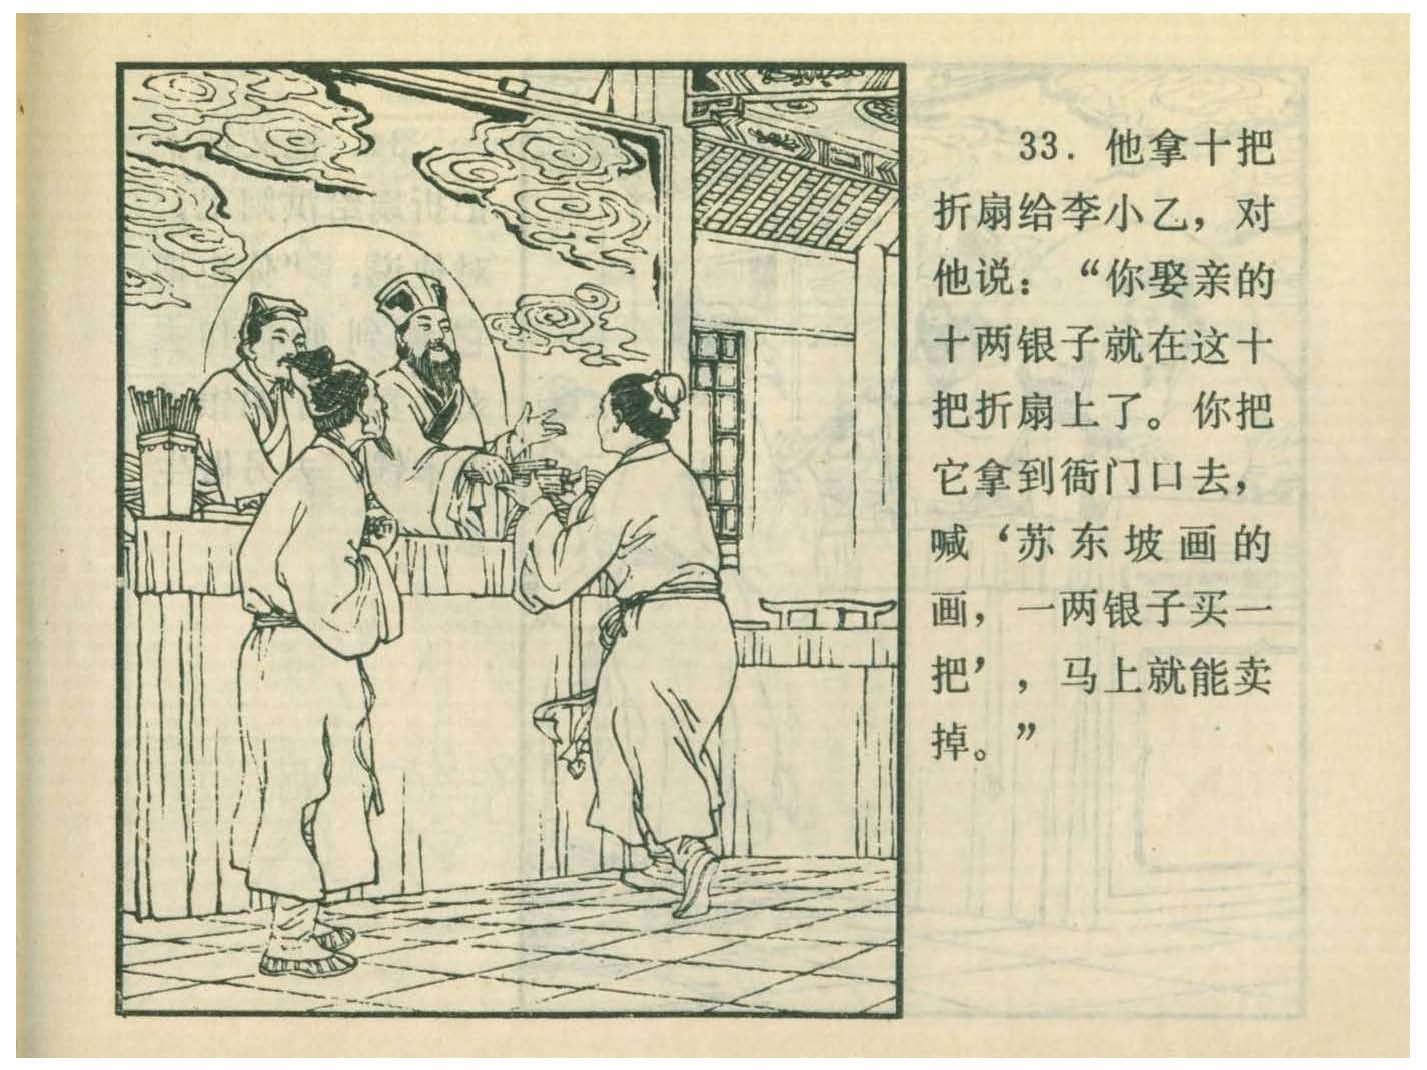 33. 他拿十把
折扇给李小乙，对
他说：“你娶亲的
十两银子就在这十
把折扇上了。你把
它拿到衙门口去，
喊‘苏东坡画的
画，一两银子买一
把’，马上就能卖
掉。”